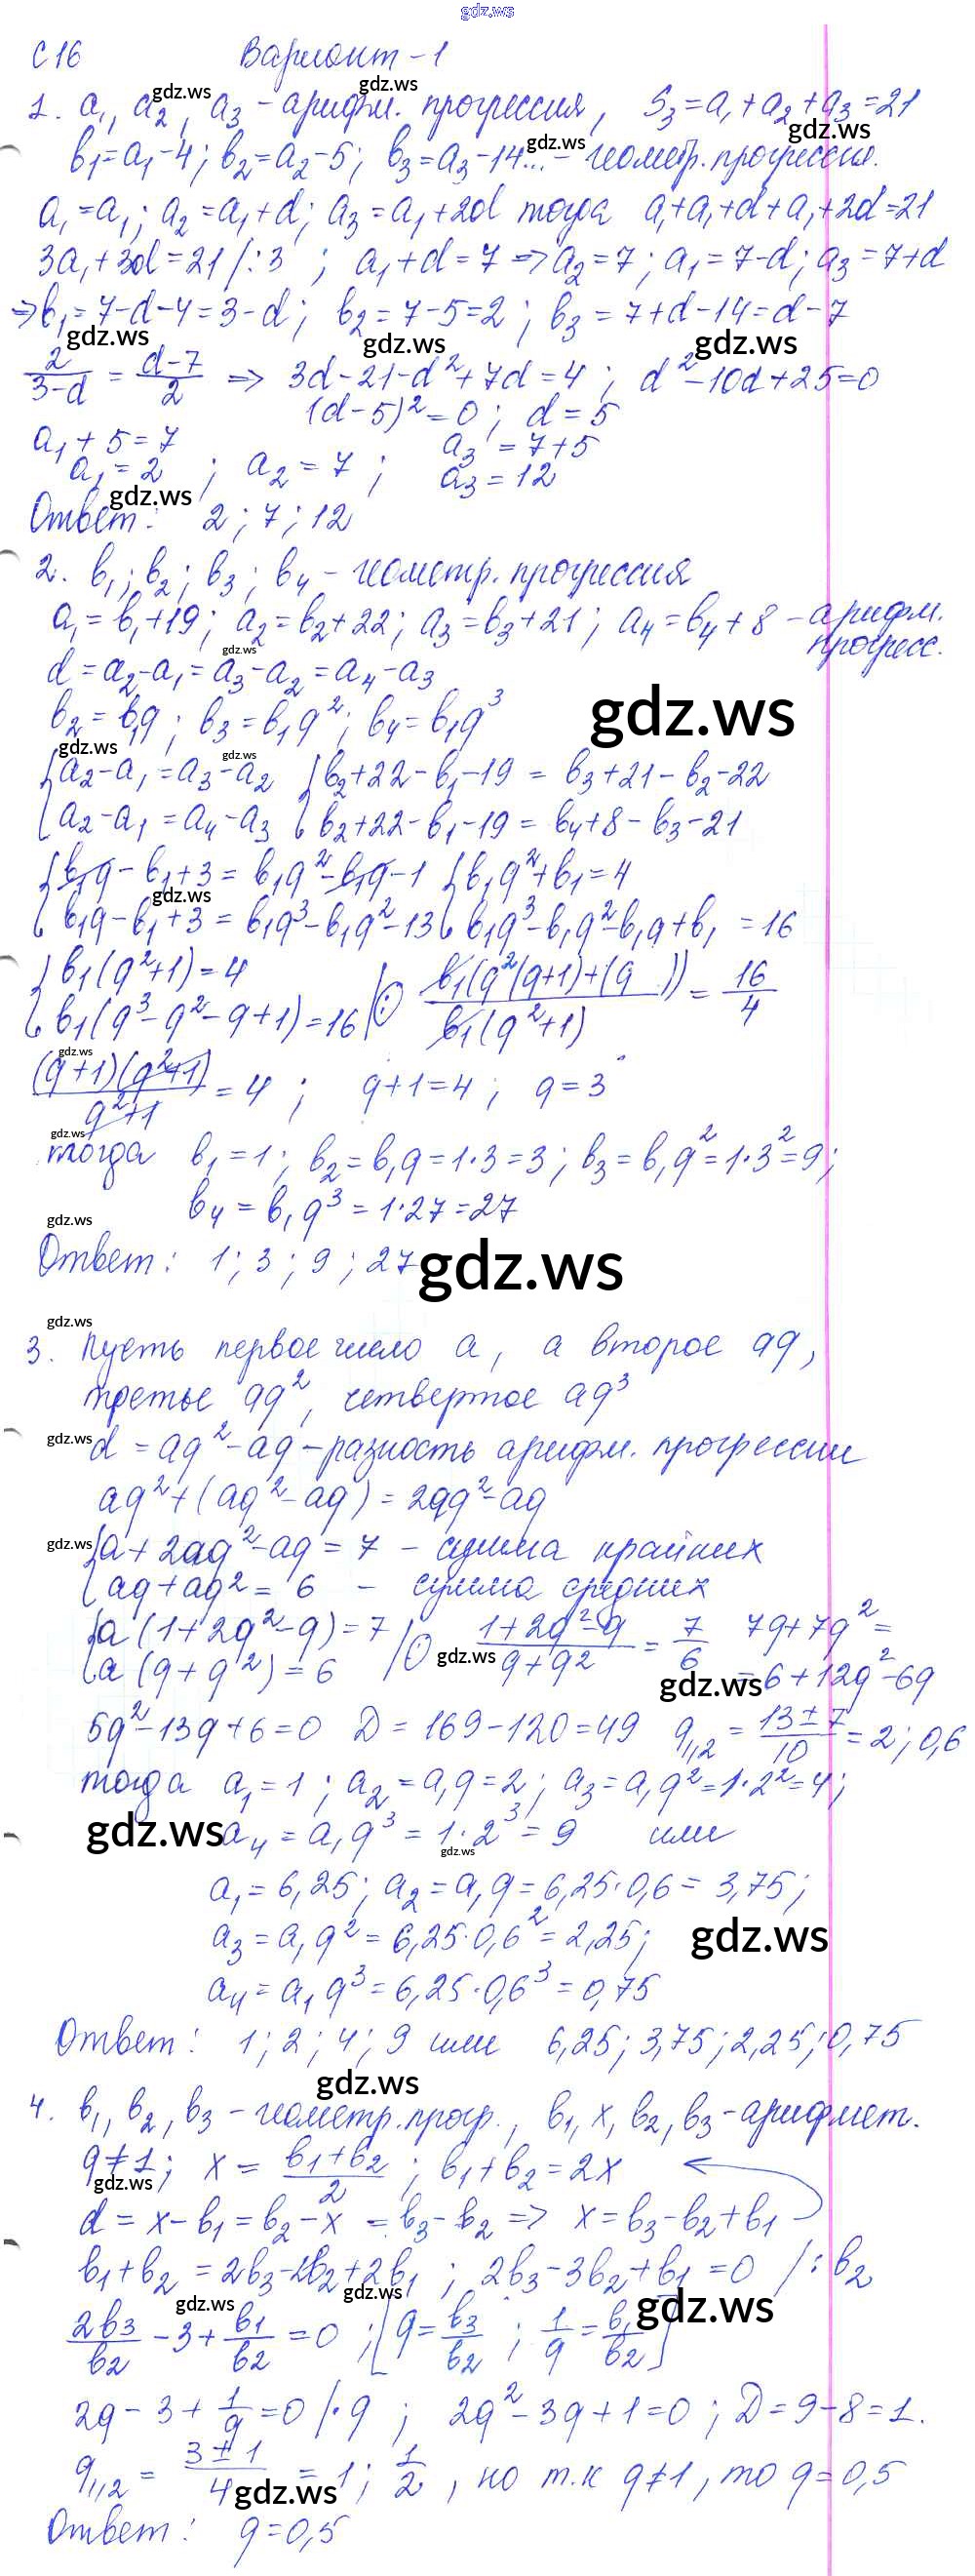 gdz.ws
С 16 Вариант - 1
1. a₁, a₂, a₃ - арифм. прогрессия, S₃ = a₁ + a₂ + a₃ = 21
b₁ = a₁ - 4; b₂ = a₂ - 5; b₃ = a₃ - 14... - геометр. прогрессия.
a₁ = a₁; a₂ = a₁ + d; a₃ = a₁ + 2d тогда a₁ + a₁ + d + a₁ + 2d = 21
3a₁ + 3d = 21 /:3 ; a₁ + d = 7 => a₂ = 7; a₁ = 7 - d; a₃ = 7 + d
=> b₁ = 7 - d - 4 = 3 - d; b₂ = 7 - 5 = 2; b₃ = 7 + d - 14 = d - 7
2/(3-d) = (d-7)/2 => 3d - 21 - d² + 7d = 4; d² - 10d + 25 = 0
(d - 5)² = 0; d = 5
a₁ + 5 = 7 a₃ = 7 + 5
a₁ = 2 ; a₂ = 7 ; a₃ = 12
Ответ: 2; 7; 12
2. b₁; b₂; b₃; b₄ - геометр. прогрессия
a₁ = b₁ + 19; a₂ = b₂ + 22; a₃ = b₃ + 21; a₄ = b₄ + 8 - арифм. прогресс.
d = a₂ - a₁ = a₃ - a₂ = a₄ - a₃
b₂ = b₁q; b₃ = b₁q²; b₄ = b₁q³
{ a₂ - a₁ = a₃ - a₂ { b₂ + 22 - b₁ - 19 = b₃ + 21 - b₂ - 22
{ a₂ - a₁ = a₄ - a₃ { b₂ + 22 - b₁ - 19 = b₄ + 8 - b₃ - 21
{ b₁q - b₁ + 3 = b₁q² - b₁q - 1 { b₁q² + b₁ = 4
{ b₁q - b₁ + 3 = b₁q³ - b₁q² - 13 { b₁q³ - b₁q² - b₁q + b₁ = 16
{ b₁(q² + 1) = 4
{ b₁(q³ - q² - q + 1) = 16 | (:) b₁(q²(q+1)+(q ))/b₁(q²+1) = 16/4
(q+1)(q²+1)/(q²+1) = 4 ; q + 1 = 4 ; q = 3
тогда b₁ = 1; b₂ = b₁q = 1·3 = 3; b₃ = b₁q² = 1·3² = 9;
b₄ = b₁q³ = 1·27 = 27
Ответ: 1; 3; 9; 27
3. Пусть первое число a, а второе aq,
третье aq², четвертое aq³
d = aq² - aq - разность арифм. прогрессии
aq² + (aq² - aq) = 2aq² - aq
{ a + 2aq² - aq = 7 - сумма крайних
{ aq + aq² = 6 - сумма средних
{ a(1 + 2q² - q) = 7
{ a(q + q²) = 6 | (:) (1+2q²-q)/(q+q²) = 7/6 7q + 7q² = = 6 + 12q² - 6q
5q² - 13q + 6 = 0 D = 169 - 120 = 49 q₁,₂ = (13±7)/10 = 2; 0,6
тогда a₁ = 1; a₂ = a₁q = 2; a₃ = a₁q² = 1·2² = 4;
a₄ = a₁q³ = 1·2³ = 9 или
a₁ = 6,25; a₂ = a₁q = 6,25·0,6 = 3,75;
a₃ = a₁q² = 6,25·0,6² = 2,25;
a₄ = a₁q³ = 6,25·0,6³ = 0,75
Ответ: 1; 2; 4; 9 или 6,25; 3,75; 2,25; 0,75
4. b₁, b₂, b₃ - геометр. прогр., b₁, x, b₂, b₃ - арифмет.
q ≠ 1; x = (b₁+b₂)/2 ; b₁ + b₂ = 2x
d = x - b₁ = b₂ - x = b₃ - b₂ => x = b₃ - b₂ + b₁
b₁ + b₂ = 2b₃ - 2b₂ + 2b₁ ; 2b₃ - 3b₂ + b₁ = 0 /: b₂
2b₃/b₂ - 3 + b₁/b₂ = 0 ; [q = b₃/b₂ ; 1/q = b₁/b₂]
2q - 3 + 1/q = 0 |·q ; 2q² - 3q + 1 = 0 ; D = 9 - 8 = 1.
q₁,₂ = (3±1)/4 = 1; 1/2, но т.к q ≠ 1, то q = 0,5
Ответ: q = 0,5